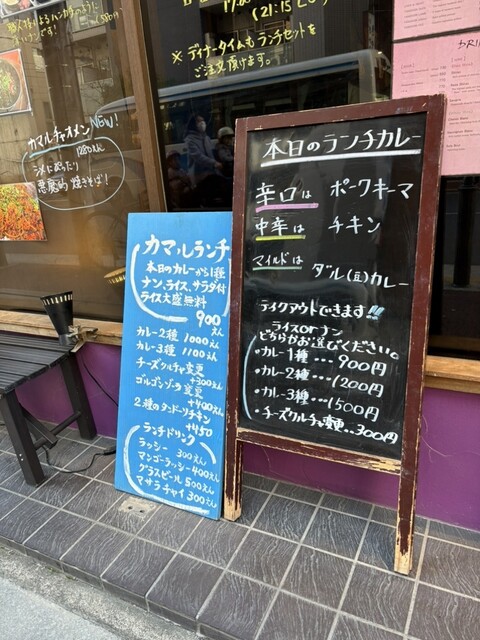 カマルチャオメン NEW!
1280えん
悪魔的 焼きそば!
(21:15 L.O)
※ ディナータイムもランチセットを
ご注文頂けます。
カマルランチ
本日のカレーから1種
ナン、ライス、サラダ付
ライス大盛無料
900えん
カレー2種 1000えん
カレー3種 1100えん
チーズクルチャ変更
+300えん
ゴルゴンゾーラ変更
+400えん
2種のタンドーリチキン
+450
ランチドリンク
ラッシー 300えん
マンゴーラッシー 400えん
グラスビール 500えん
マサラチャイ 300えん
本日のランチカレー
辛口は ポークキーマ
中辛は チキン
マイルドは ダル(豆)カレー
テイクアウトできます!!
ライスorナン
どちらかお選びください。
・カレー1種…900円
・カレー2種…1200円
・カレー3種…1500円
・チーズクルチャ変更..300円